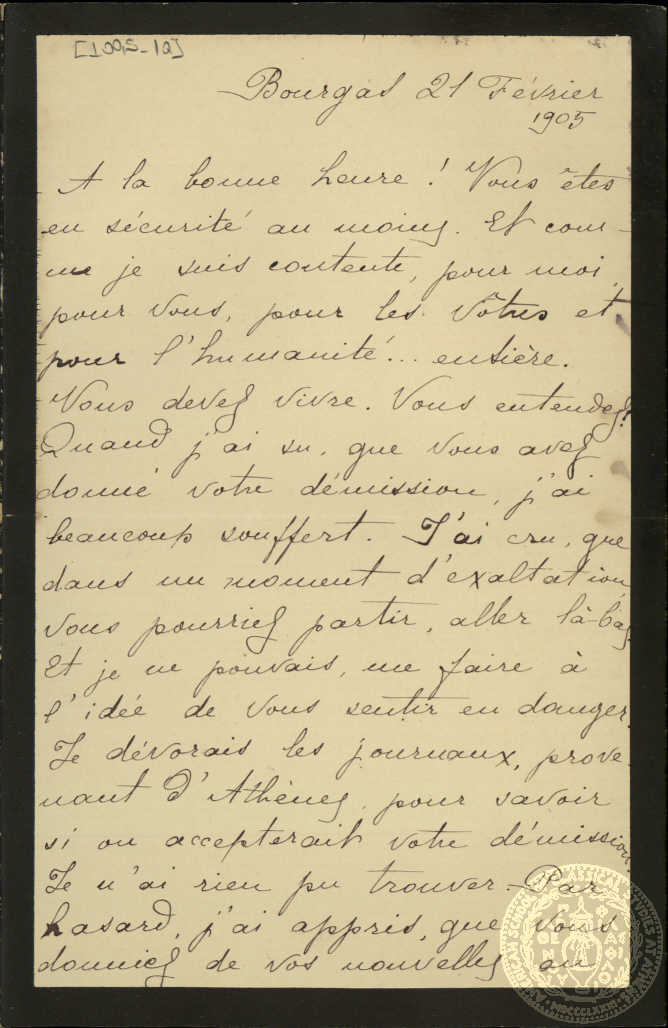 [1995-12]
Bourgas 21 Février
1905
A la bonne heure! Vous êtes
en sécurité au moins. Et com-
me je suis contente, pour moi,
pour vous, pour les Vôtres et
pour l'humanité... entière.
Vous devez vivre. Vous entendez!
Quand j'ai su, que vous avez
donné votre démission, j'ai
beaucoup souffert. J'ai cru, que
dans un moment d'exaltation,
vous pourriez partir, aller là-bas.
Et je ne pouvais, me faire à
l'idée de vous sentir en danger.
Je dévorais les journaux, prove-
nant d'Athènes, pour savoir
si on accepterait votre démission.
Je n'ai rien pu trouver. Par
hasard, j'ai appris, que vous
donniez de vos nouvelles au
AMERICAN SCHOOL OF CLASSICAL STUDIES AT ATHENS
MDCCCLXXXI